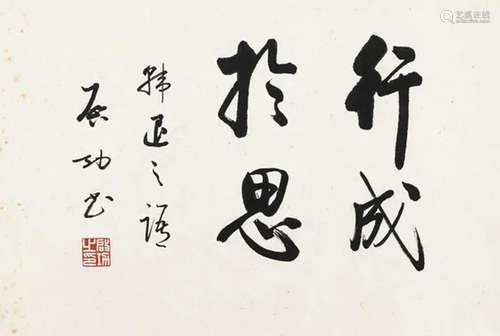 行成
於思
韩退之语
启功书
启功之印
艺狐在线